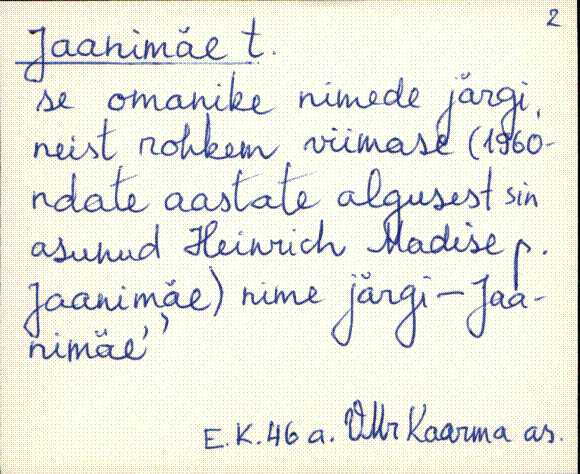 2
Jaanimäe t.
se omanike nimede järgi,
neist rohkem viimase (1960-
ndate aastate algusest siin
asunud Heinrich Madise p.
Jaanimäe) nime järgi – Jaa-
nimäe''
E.K. 46 a. Kaarma as.